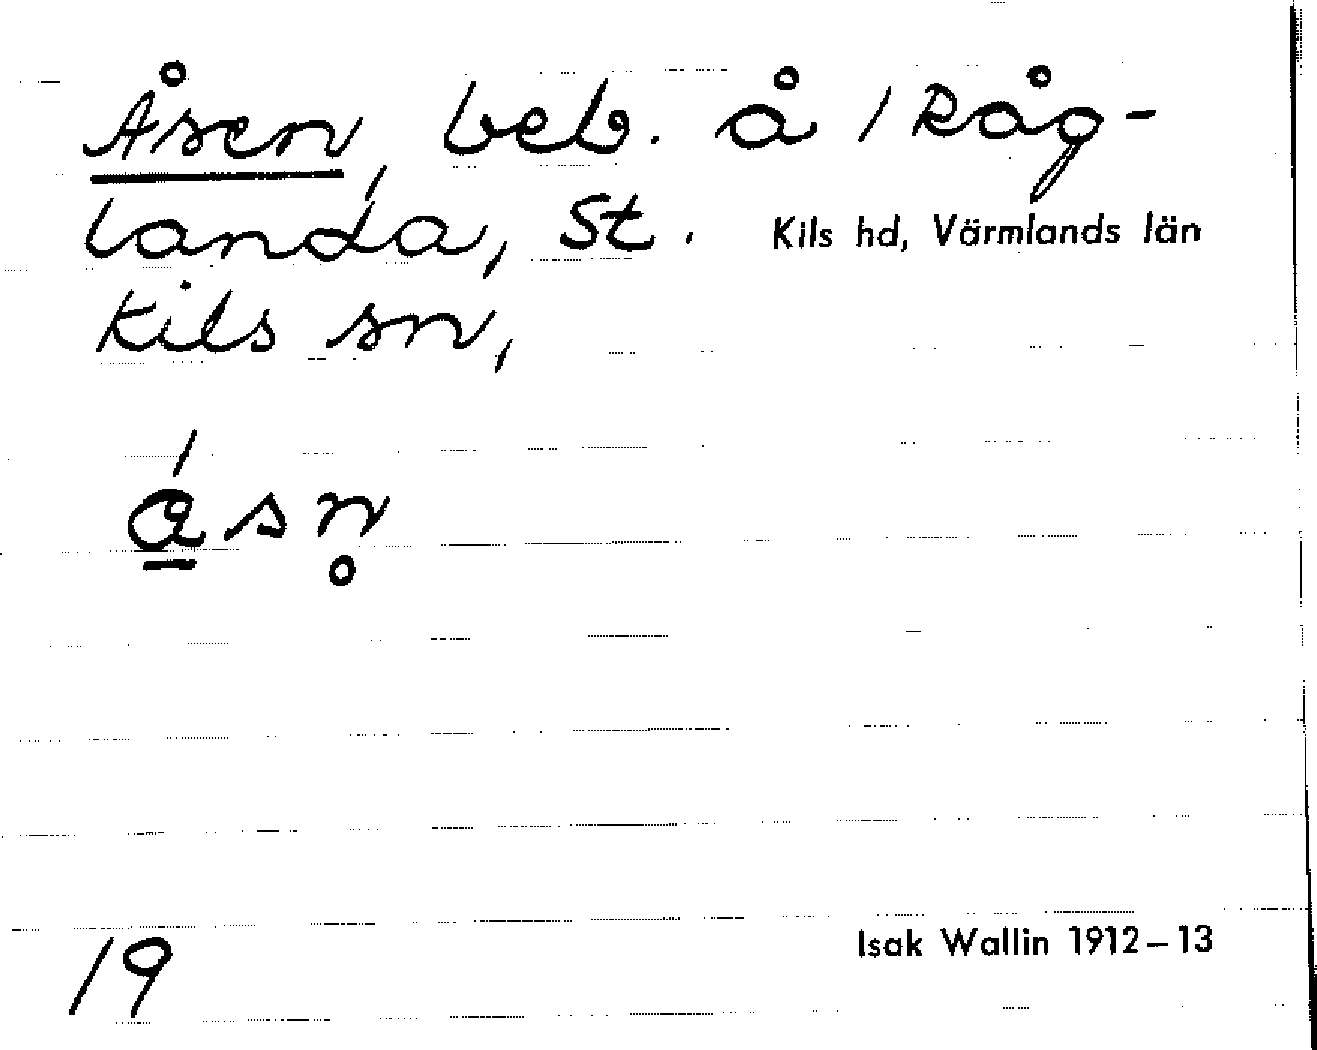 Åsen, beb. å 1 Råg-
landa, St. Kils hd, Värmlands län
Kils sn,
åsn̥
19
Isak Wallin 1912–13